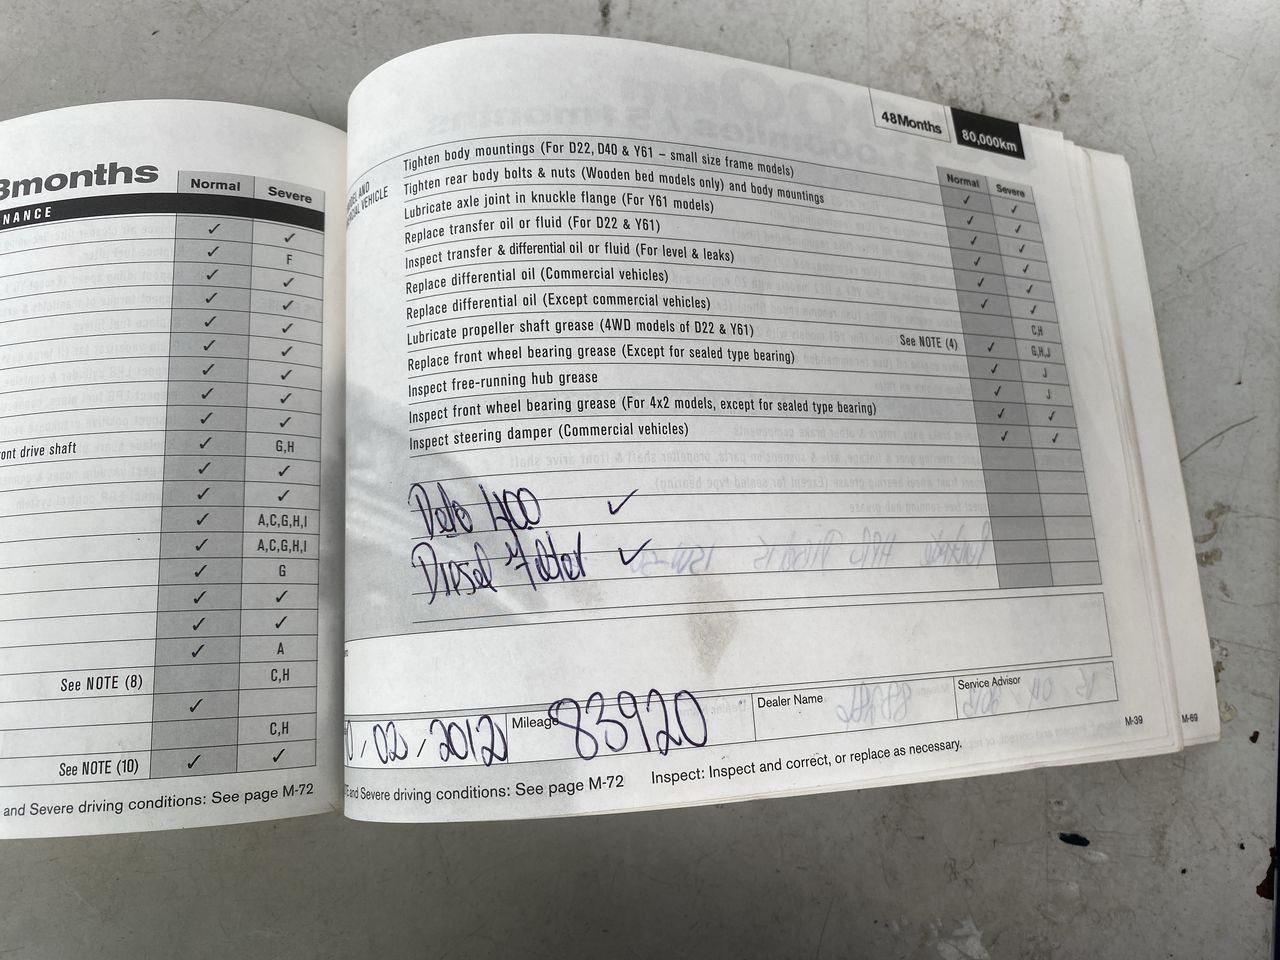 3months
Normal
Severe
NANCE
✓ ✓
✓ F
✓ ✓
✓ ✓
✓ ✓
✓ ✓
✓ ✓
✓ ✓
ront drive shaft ✓ G,H
✓ ✓
✓ ✓
✓ A,C,G,H,I
✓ A,C,G,H,I
✓ G
✓ ✓
✓ ✓
✓ A
See NOTE (8) C,H
✓
C,H
See NOTE (10) ✓ ✓
and Severe driving conditions: See page M-72
48Months
80,000km
Normal
Severe
Tighten body mountings (For D22, D40 & Y61 – small size frame models) ✓ ✓
Tighten rear body bolts & nuts (Wooden bed models only) and body mountings ✓ ✓
Lubricate axle joint in knuckle flange (For Y61 models) ✓ ✓
Replace transfer oil or fluid (For D22 & Y61) ✓ ✓
Inspect transfer & differential oil or fluid (For level & leaks) ✓ ✓
Replace differential oil (Commercial vehicles) ✓ ✓
Replace differential oil (Except commercial vehicles) C,H
Lubricate propeller shaft grease (4WD models of D22 & Y61) See NOTE (4) ✓ G,H,J
Replace front wheel bearing grease (Except for sealed type bearing) ✓ J
Inspect free-running hub grease ✓ J
Inspect front wheel bearing grease (For 4x2 models, except for sealed type bearing) ✓ ✓
Inspect steering damper (Commercial vehicles) ✓ ✓
Delo 400 ✓
Diesel Filter ✓
0/02/2012
Mileage 83920
Dealer Name
Service Advisor
and Severe driving conditions: See page M-72
Inspect: Inspect and correct, or replace as necessary.
M-39
M-69